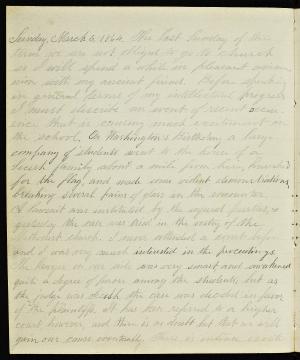 Sunday, March 6, 1864. The last Sunday of this
term we are not obliged to go to church
so I will spend a while in pleasant commun-
nion with my ancient friend. Before speaking
in general terms of my intellectual progress
I must describe an event of recent occur-
ence that is causing much excitement in
the school. On Washington's Birthday a large
company of students went to the house of a
Secesh family about a mile from here,
for the flag, and made some violent demonstrations,
breaking several panes of glass in the encounter.
A lawsuit was instituted by the injured parties, &
yesterday the case was tried in the vestry of the
Methodist church. I never attended a court before
and I was very much interested in the proceedings.
The lawyer on our side was very smart and awakened
quite a degree of favor among the students, but as
the judge was secesh, the case was decided in favor
of the plaintiffs. It has been referred to a higher
court however, and there is no doubt but that we will
gain our cause eventually. There is intense excite